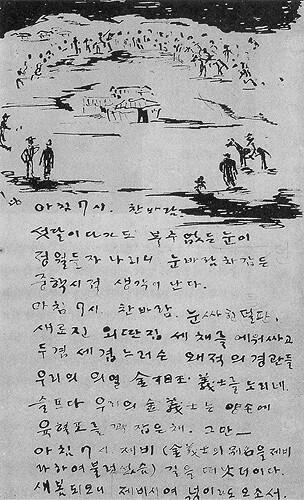 아침 7시. 찬바람.
섯달이다가도 볼수없든눈이
정월들자 나리니 눈바람차갑든
중학시적 생각이 난다.
아침 7시. 찬바람. 눈싸힌벌판.
새로진 외딴집 세채를에워싸고
두겹 세겹느러슨 왜적의경관들
우리의 의열 金相玉 義士를노리네.
슬프다 우리의 金義士는 양손에
육혈포를 꽉잡은채. 그만—
아침 7시 제비 (金義士의 을 제비
라하여불렀었음) 길을 떠낫더이다.
새봄되오니 제비시여 넋이라도오소서.